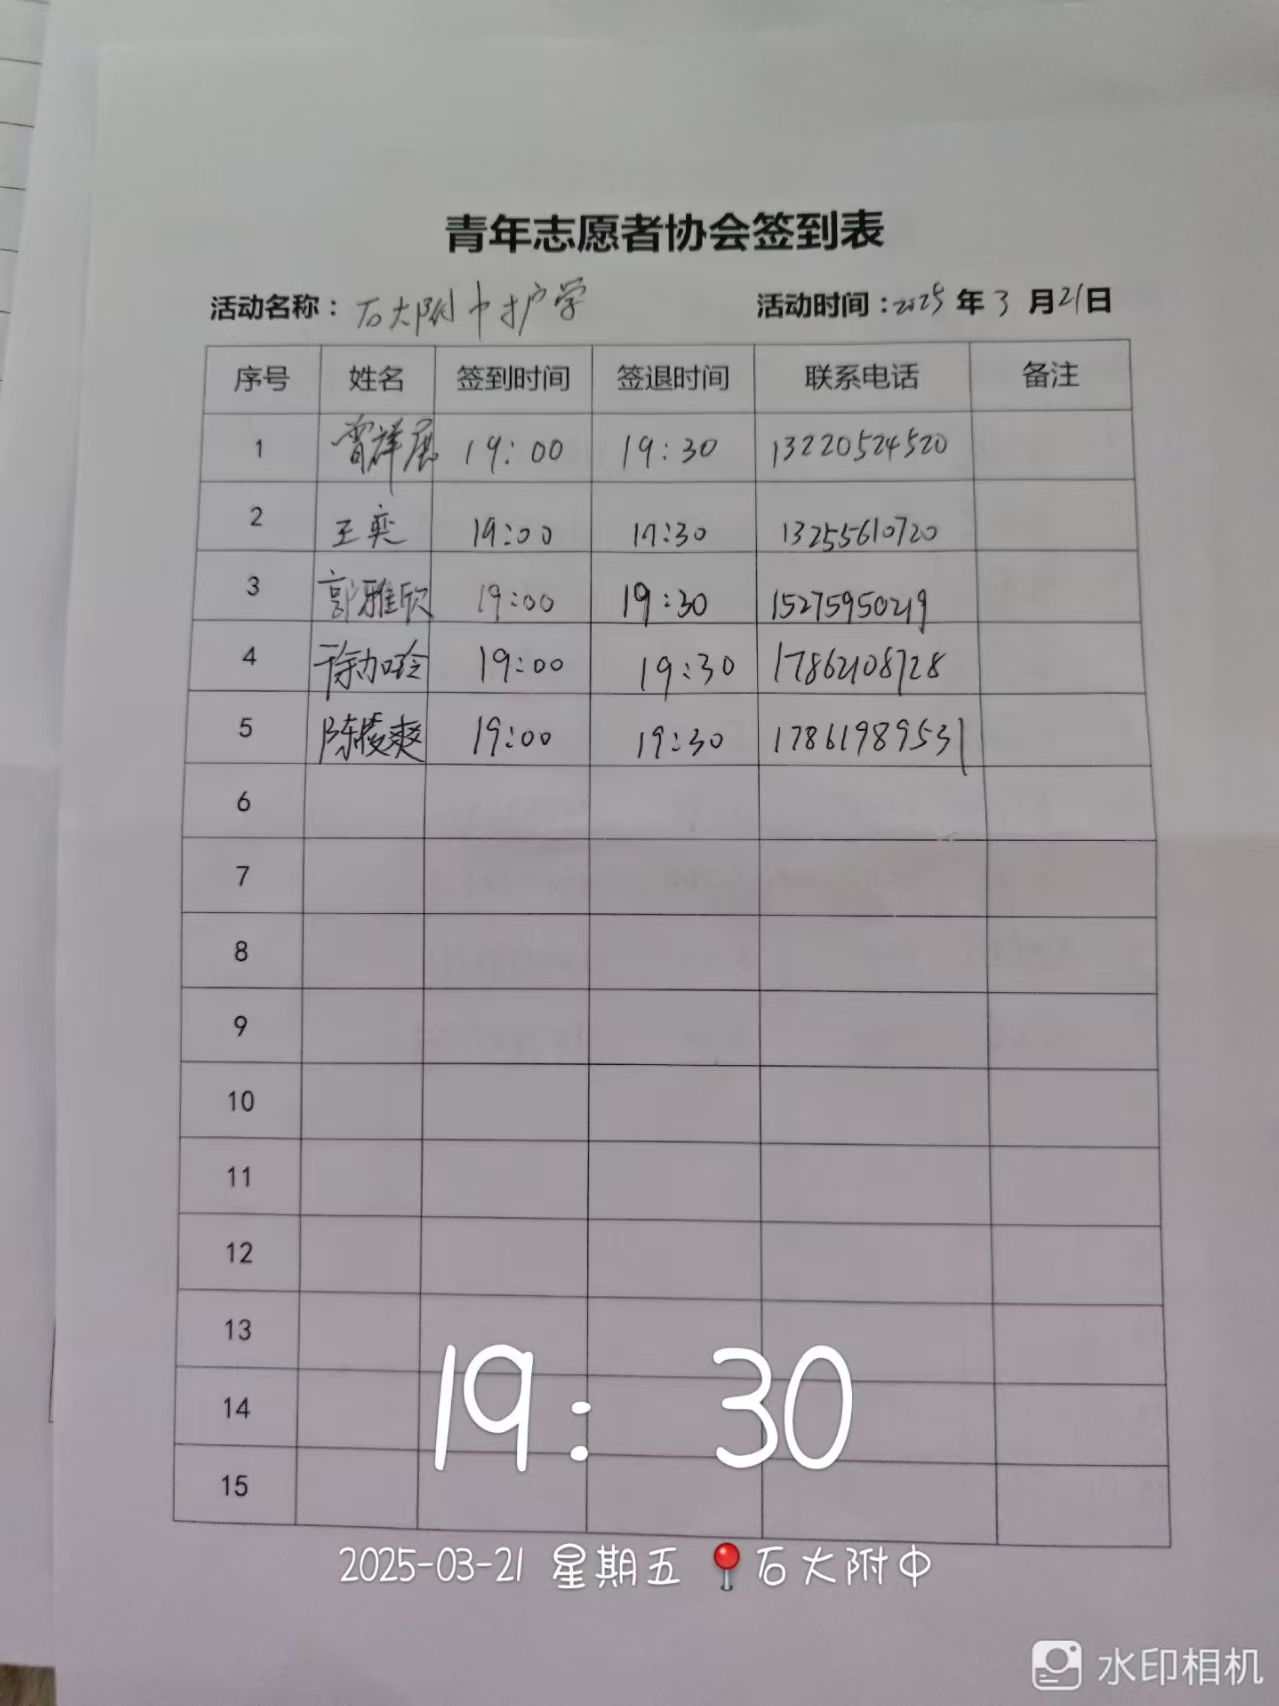 青年志愿者协会签到表
活动名称：石大附中护学 活动时间：2025年3月21日
序号 姓名 签到时间 签退时间 联系电话 备注
1 祥展 19:00 19:30 13220524520
2 王奕 19:00 19:30 13255610720
3 郭雅欣 19:00 19:30 15275950219
4 徐加玲 19:00 19:30 17862108728
5 陈棱爽 19:00 19:30 17861989531
6
7
8
9
10
11
12
13
14
15
19: 30
2025-03-21 星期五 石大附中
水印相机